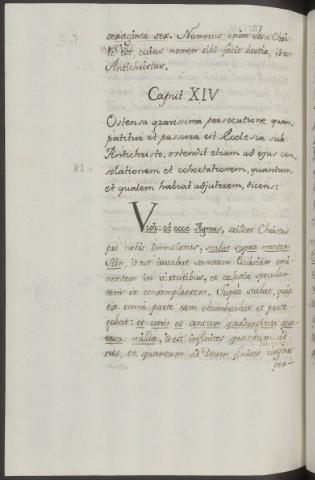 sexaginta sex. Numerus enim
est cuius nomen sibi facit bestia, id est
Antichristus.
Caput XIV
Ostensa gravissima persecutione quam
patitur et passura est Ecclesia sub
Antichristo, ostendit etiam ad ejus con
solationem et cohortationem, quantum,
et qualem habeat adjutorem, dicens:
Vidi: et ecce Agnus, scilicet Christus
pro nobis immolatus, stabat supra montem
Sion, id est iuvabat sanctam Ecclesiam emi
nentem in virtutibus, et celestia speculan
tem et contemplantem. Supra stabat, quia
ex omni parte eam obumbrabat et prote
gebat: et cum eo centum quadraginta qua
tuor millia, id est infinitos quantum ad
nos, et quantum ad Deum finitos,
per-